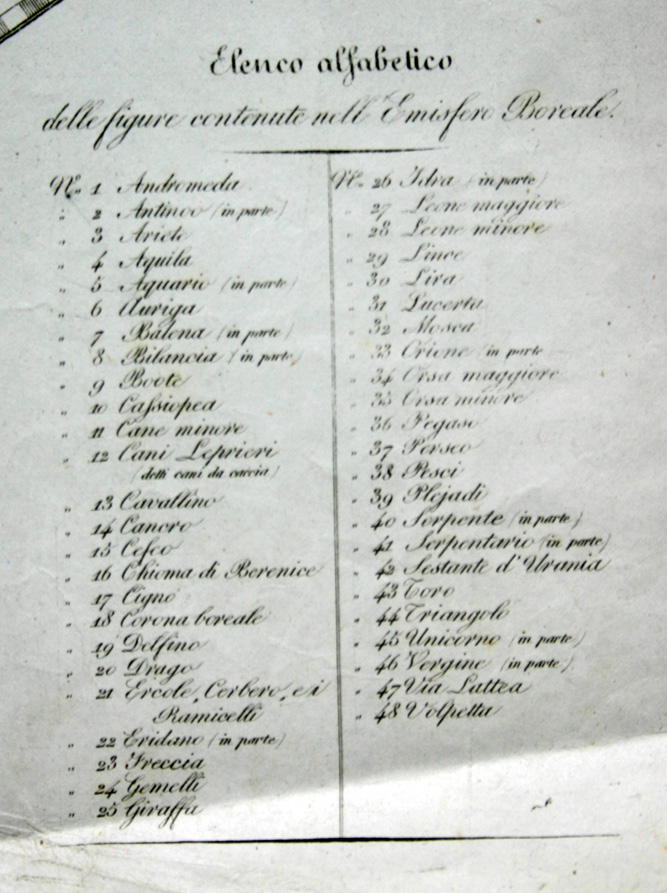 Elenco alfabetico
delle figure contenute nell' Emisfero Boreale.
N.º 1 Andromeda
" 2 Antinoo (in parte)
" 3 Ariete
" 4 Aquila
" 5 Aquario (in parte)
" 6 Auriga
" 7 Balena (in parte)
" 8 Bilancia (in parte)
" 9 Boote
" 10 Cassiopea
" 11 Cane minore
" 12 Cani Leprieri
(detti cani da caccia)
" 13 Cavallino
" 14 Cancro
" 15 Cefeo
" 16 Chioma di Berenice
" 17 Cigno
" 18 Corona boreale
" 19 Delfino
" 20 Drago
" 21 Ercole, Cerbero, e i
Ramicelli
" 22 Eridano (in parte)
" 23 Freccia
" 24 Gemelli
" 25 Giraffa
N.º 26 Idra (in parte)
" 27 Leone maggiore
" 28 Leone minore
" 29 Lince
" 30 Lira
" 31 Lucerta
" 32 Mosca
" 33 Orione (in parte
" 34 Orsa maggiore
" 35 Orsa minore
" 36 Pegaso
" 37 Perseo
" 38 Pesci
" 39 Plejadi
" 40 Serpente (in parte)
" 41 Serpentario (in parte)
" 42 Sestante d'Urania
" 43 Toro
" 44 Triangolo
" 45 Unicorno (in parte)
" 46 Vergine (in parte)
" 47 Via Lattea
" 48 Volpetta